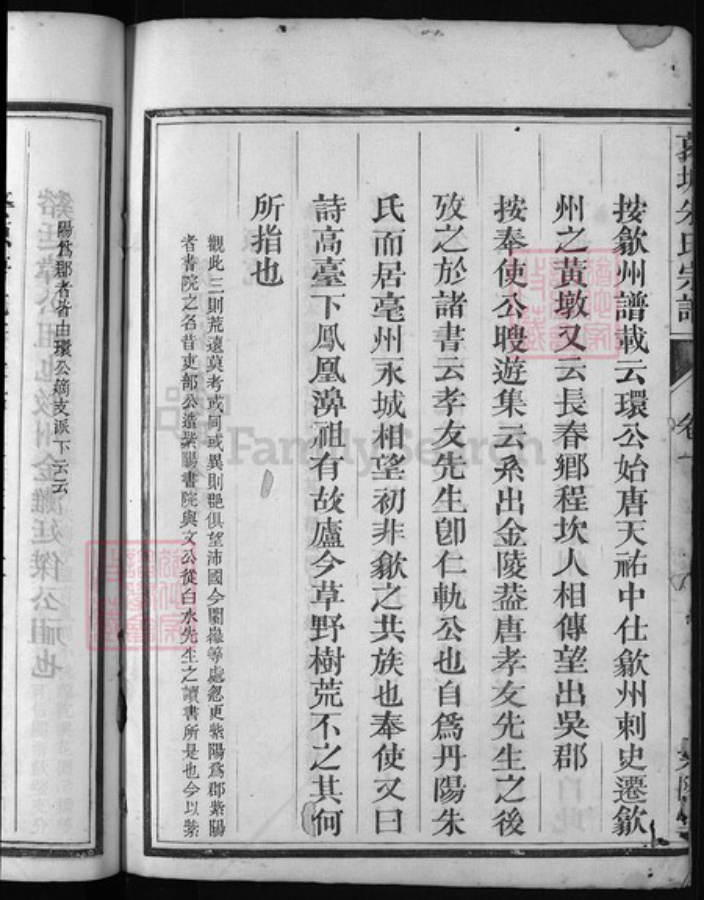 朱氏宗譜
卷
按歙州譜載云環公始唐天祐中仕歙州刺史遷歙
州之黃墩又云長春鄉程坎人相傳望出吳郡
按奉使公聘遊集云系出金陵葢唐孝友先生之後
攷之於諸書云孝友先生卽仁軌公也自爲丹陽朱
氏而居亳州永城相望初非歙之共族也奉使又曰
詩高臺下鳳凰濞祖有故廬今草野樹荒不之其何
所指也
觀此三則荒遠莫考或同或異則槩俱望沛國今閩婺等處忽更紫陽爲郡紫陽
者書院之名昔吏部公遺紫陽書院與文公從白水先生之讀書所是也今以紫
陽爲郡者皆由環公嫡支派下云云
FamilySearch